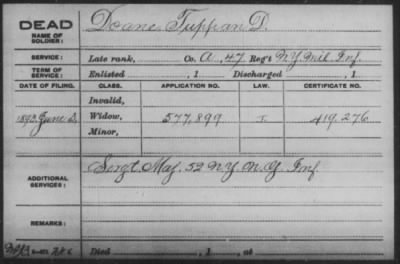 DEAD
NAME OF SOLDIER: Doane, Tuppan D.
SERVICE: Late rank, Co. A, 47 Reg't N.Y. Mil. Inf.
TERM OF SERVICE: Enlisted , 1 Discharged , 1
DATE OF FILING. CLASS. APPLICATION NO. LAW. CERTIFICATE NO.
Invalid,
1893, June 3, Widow, 577,899 419,276
Minor,
ADDITIONAL SERVICES: Sergt. Maj. 52 N.Y. N.G. Inf.
REMARKS:
Died , 1 , at